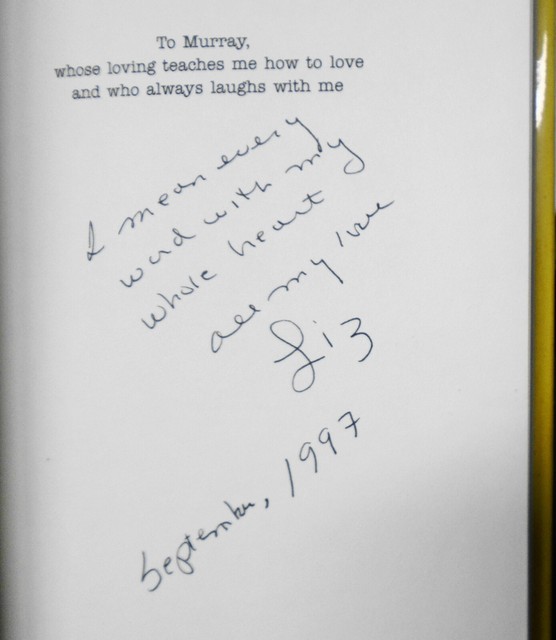 To Murray,
whose loving teaches me how to love
and who always laughs with me
I mean every
word with my
whole heart
all my love
Liz
September, 1997